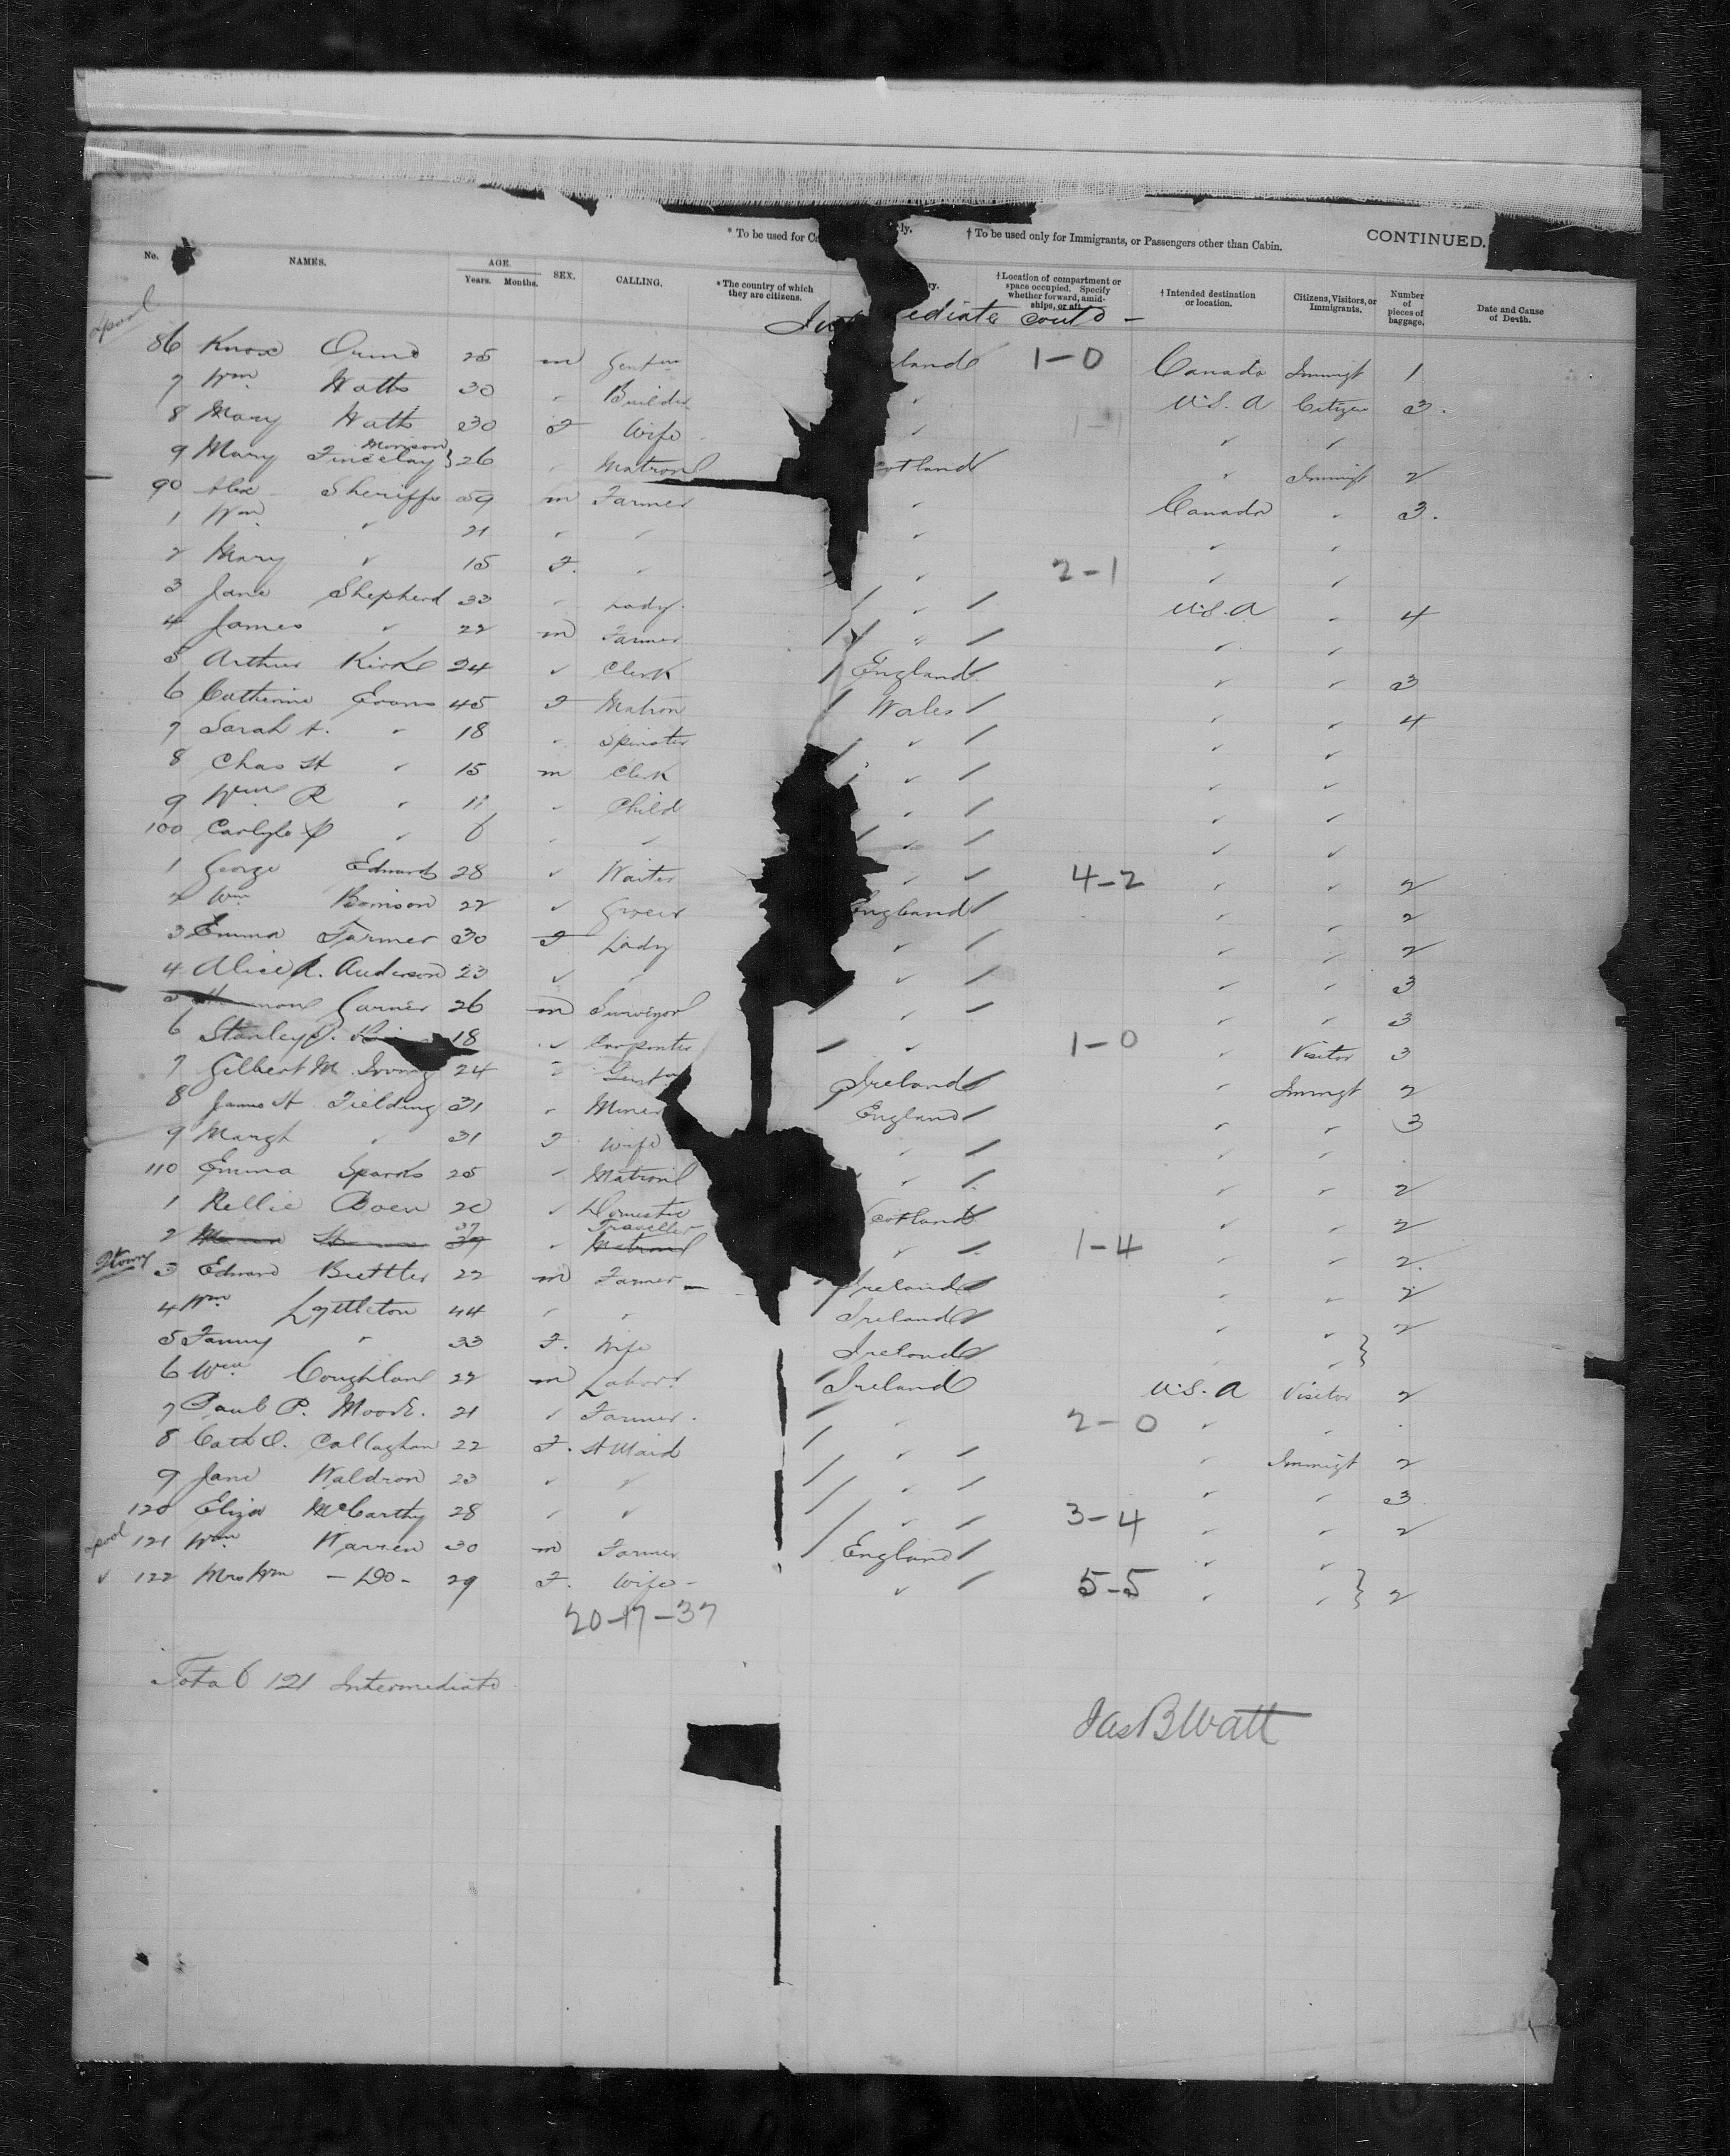 * To be used for Ca ly. † To be used only for Immigrants, or Passengers other than Cabin. CONTINUED.
No. NAMES. AGE. Years. Months. SEX. CALLING. * The country of which they are citizens. ry. † Location of compartment or space occupied. Specify whether forward, amid-ships, or aft. † Intended destination or location. Citizens, Visitors, or Immigrants. Number of pieces of baggage. Date and Cause of Death.
ediate Contd -
Lpool
86 Knox 25 m Gentm land 1-0 Canada Immigt 1
7 Wm Watts 30 " Builder " U.S.A Citizen 3.
8 Mary Watts 30 F Wife " " "
Morison
9 Mary Fineclay } 26 " Matron cotland " Immigt 2
90 Alex Sheriffs 59 m Farmer " Canada " 3.
1 Wm " 21 " " " " "
2 Mary " 15 F. " " 2-1 " "
3 Jane Shepherd 33 " Lady " U.S.A " 4
4 James " 22 m Farmer " " "
5 Arthur Kirk 24 " Clerk England " " 3
6 Catherine Evans 45 F Matron Wales " " 4
7 Sarah A. " 18 " Spinster " " "
8 Chas H " 15 m Clerk " " "
9 Wm R " 11 " Child " " "
100 Carlyle " 6 " " " " "
1 George Edwards 28 " Waiter " 4-2 " " 2
2 Wm 22 " Grocer England " " 2
3 Emma Farmer 30 F Lady " " " 2
4 Alice Anderson 23 " " " " " 3
5 Garner 26 m Surveyor " " " 3
6 Stanley 18 " Carpenter " 1-0 " Visitor 3
7 Gilbert M. Irving 24 " Gentm Ireland " Immigt 2
8 James H Fielding 31 " Miner England " " 3
9 Margt " 31 F Wife " " " .
110 Emma Sparks 25 " Matron " " " 2
1 Nellie 20 " Domestic Scotland " " 2
37 Traveller
2 39 " Matron " 1-4 " " 2.
Qtown
3 Edward Brettler 22 m Farmer - Ireland " " 2
4 Wm Lyttleton 44 " " Ireland " " 2
5 Fanny " 33 F. Wife Ireland " " }
6 Wm Coughlan 22 m Labor. Ireland U.S.A Visitor 2
7 Paul P. Moode. 21 " Farmer. " 2-0 " " .
8 Cath O. Callaghan 22 F. H Maid " " Immigt 2
9 Jane Waldron 23 " " " " " 3
120 Eliza McCarthy 28 " " " 3-4 " " 2
Lpool 121 Wm Warren 30 m Farmer England " "
" 122 Mrs Wm - Do - 29 F. Wife - " 5-5 " " } 2
20-17-37
Total 121 Intermediate
Jas B Watt